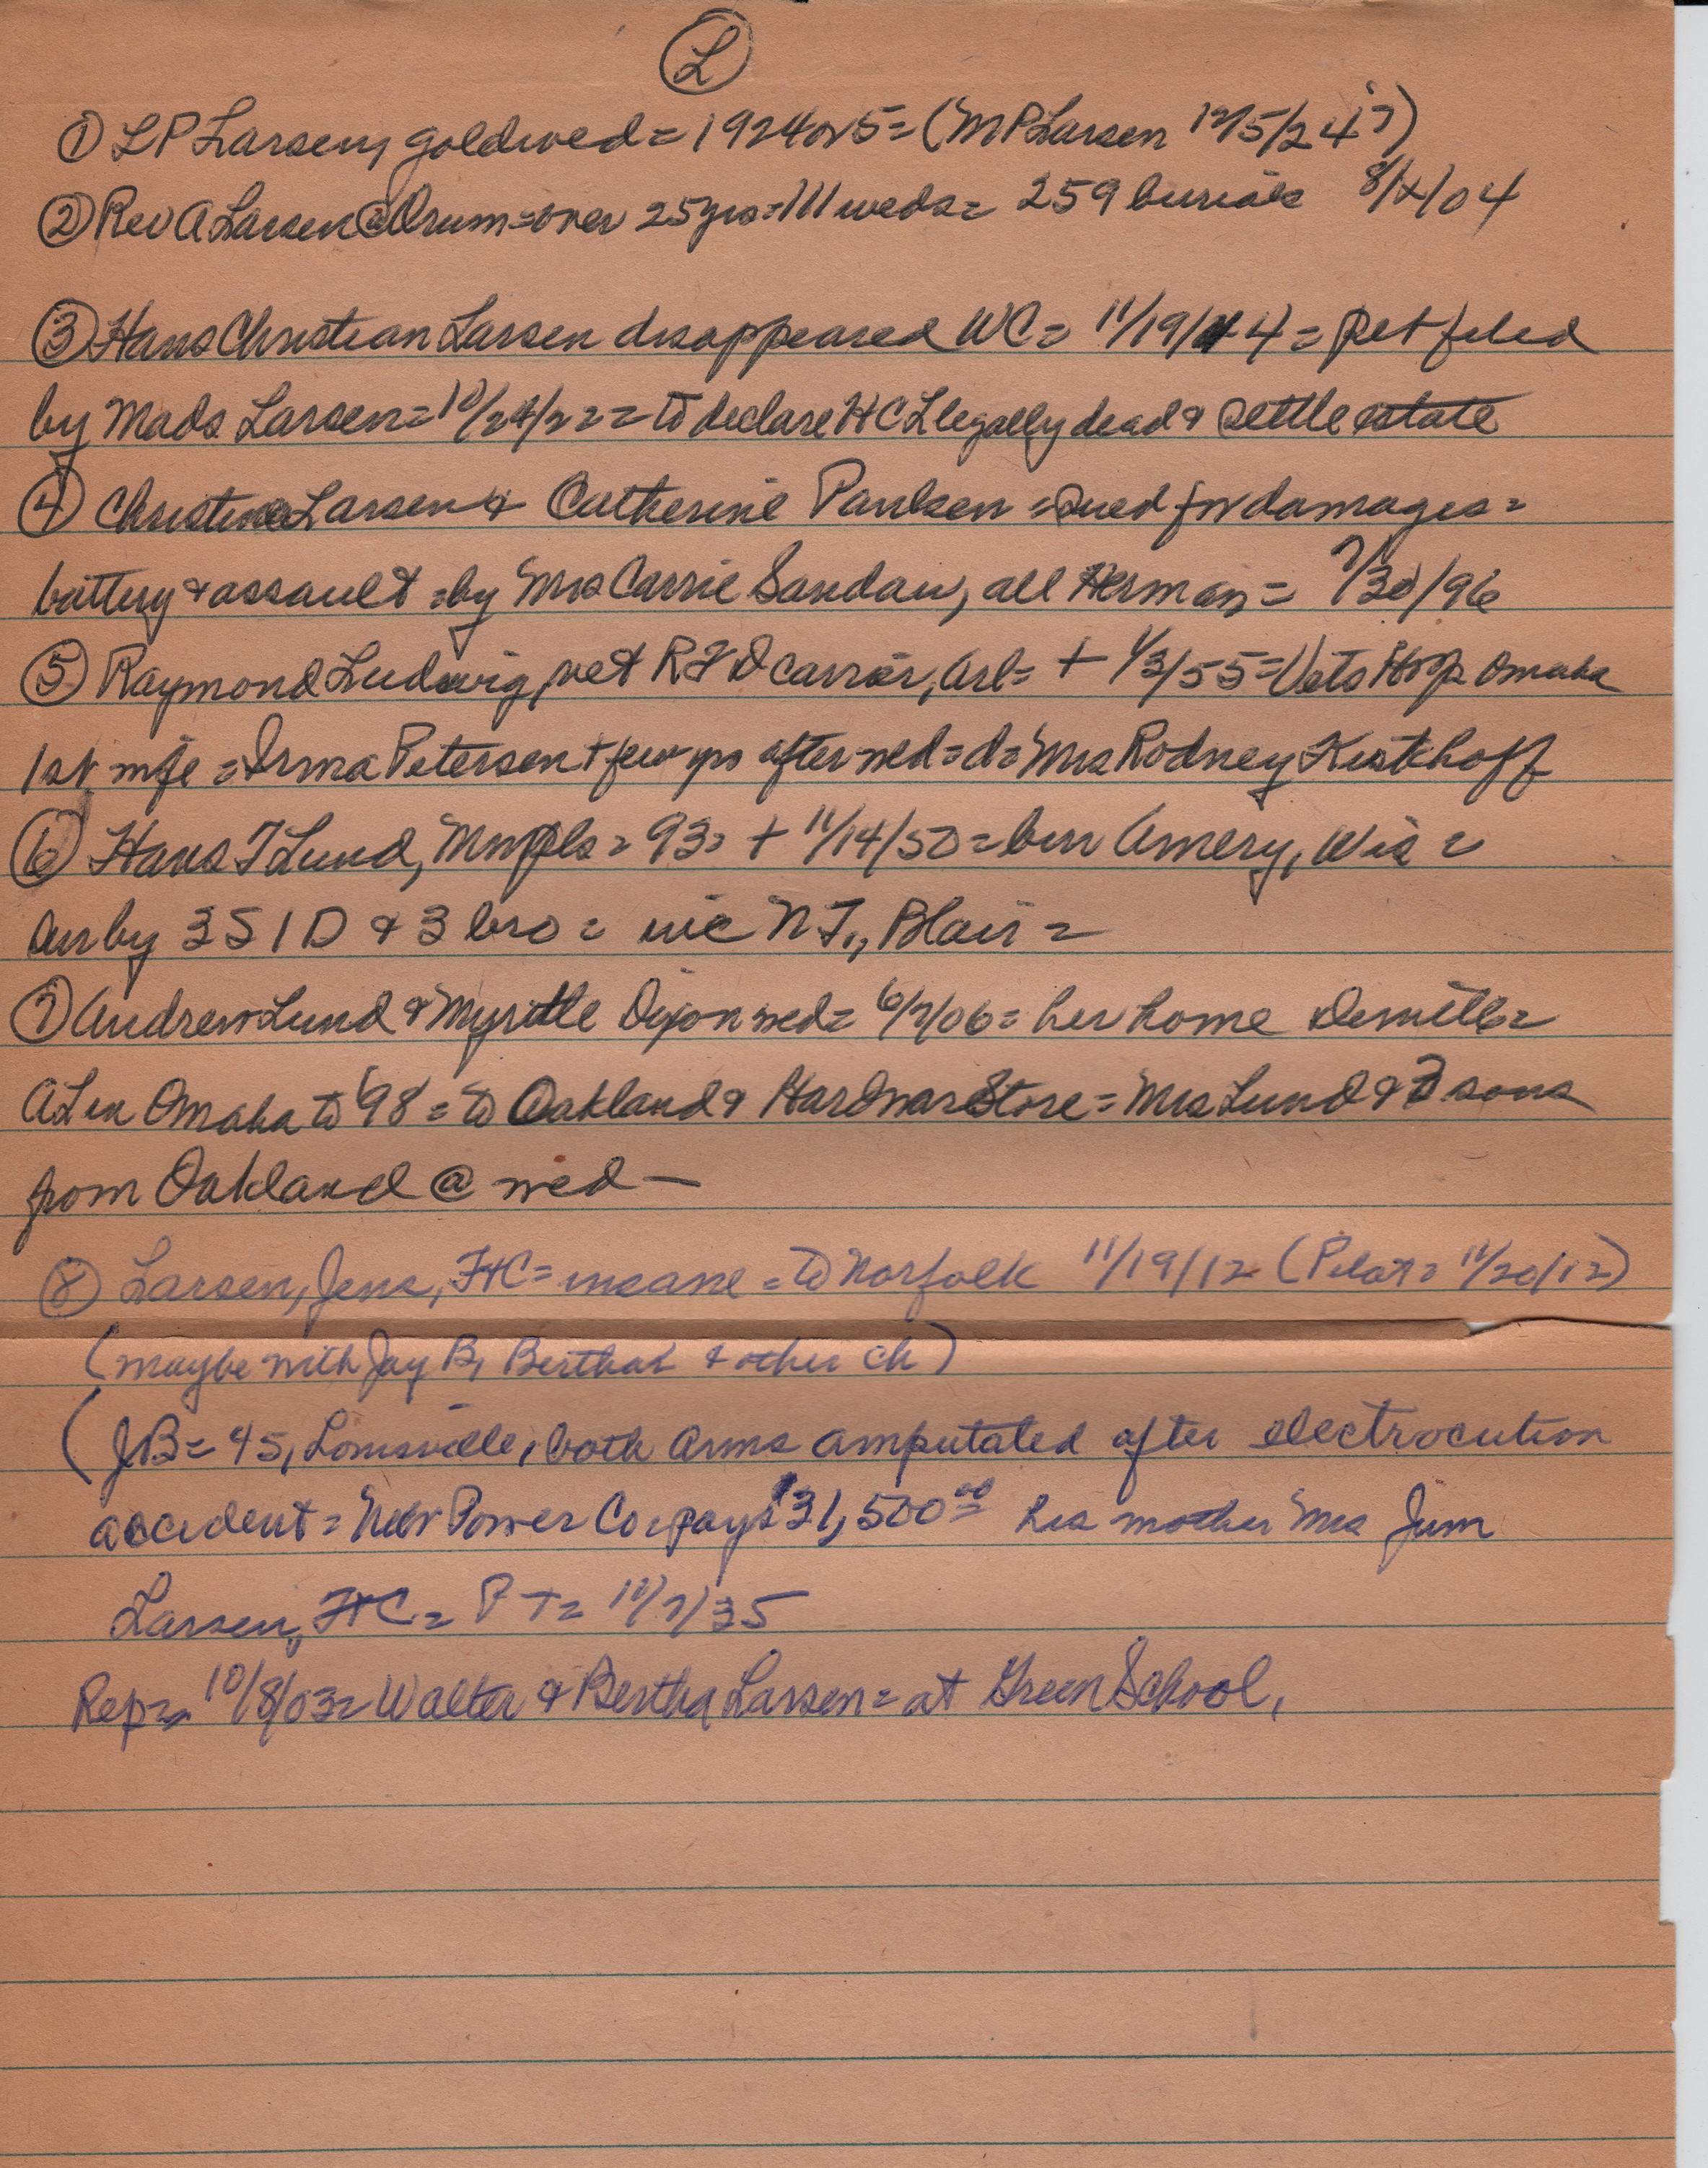 L
① LP Larsen, goldwed = 1924 or 5 = (MP Larsen 12/5/24?)
② Rev A Larsen @ Orum = over 25 yrs = 111 weds = 259 burials 8/4/04
③ Hans Christian Larsen disappeared WC = 11/19/14 = pet filed
by Mads Larsen = 10/24/22 = to declare HCL legally dead & settle estate
④ Christine Larsen & Catherine Paulsen = sued for damages =
battery & assault = by Mrs Carrie Sandau, all Herman = 7/30/96
⑤ Raymond Ludwig, ret RFD carrier, Arl = + 1/3/55 = Vets Hosp Omaha
1st wife = Irma Petersen + few yrs after wed = d = Mrs Rodney
⑥ Hans T Lund, Mnpls = 93 = + 11/14/50 = bur Amery, Wis =
sur by 3 S 1 D & 3 bro = inc N.T., Blair =
⑦ Andrew Lund & Myrtle Dixon wed = 6/7/06 = her home =
AL in Omaha to '98 = to Oakland & Hardware Store = Mrs Lund & 3 sons
from Oakland @ wed —
⑧ Larsen, Jens, FtC = insane = to Norfolk 11/19/12 (Pilot = 11/20/12)
(maybe with Jay B, Bertha & other ch)
(JB = 45, Louisville, both arms amputated after electrocution
accident = Nebr Power Co pays $31,500.00 his mother Mrs Jim
Larsen, FtC = PT = 11/7/35
Rep = 10/8/03 = Walter & Bertha Larsen = at Green School,